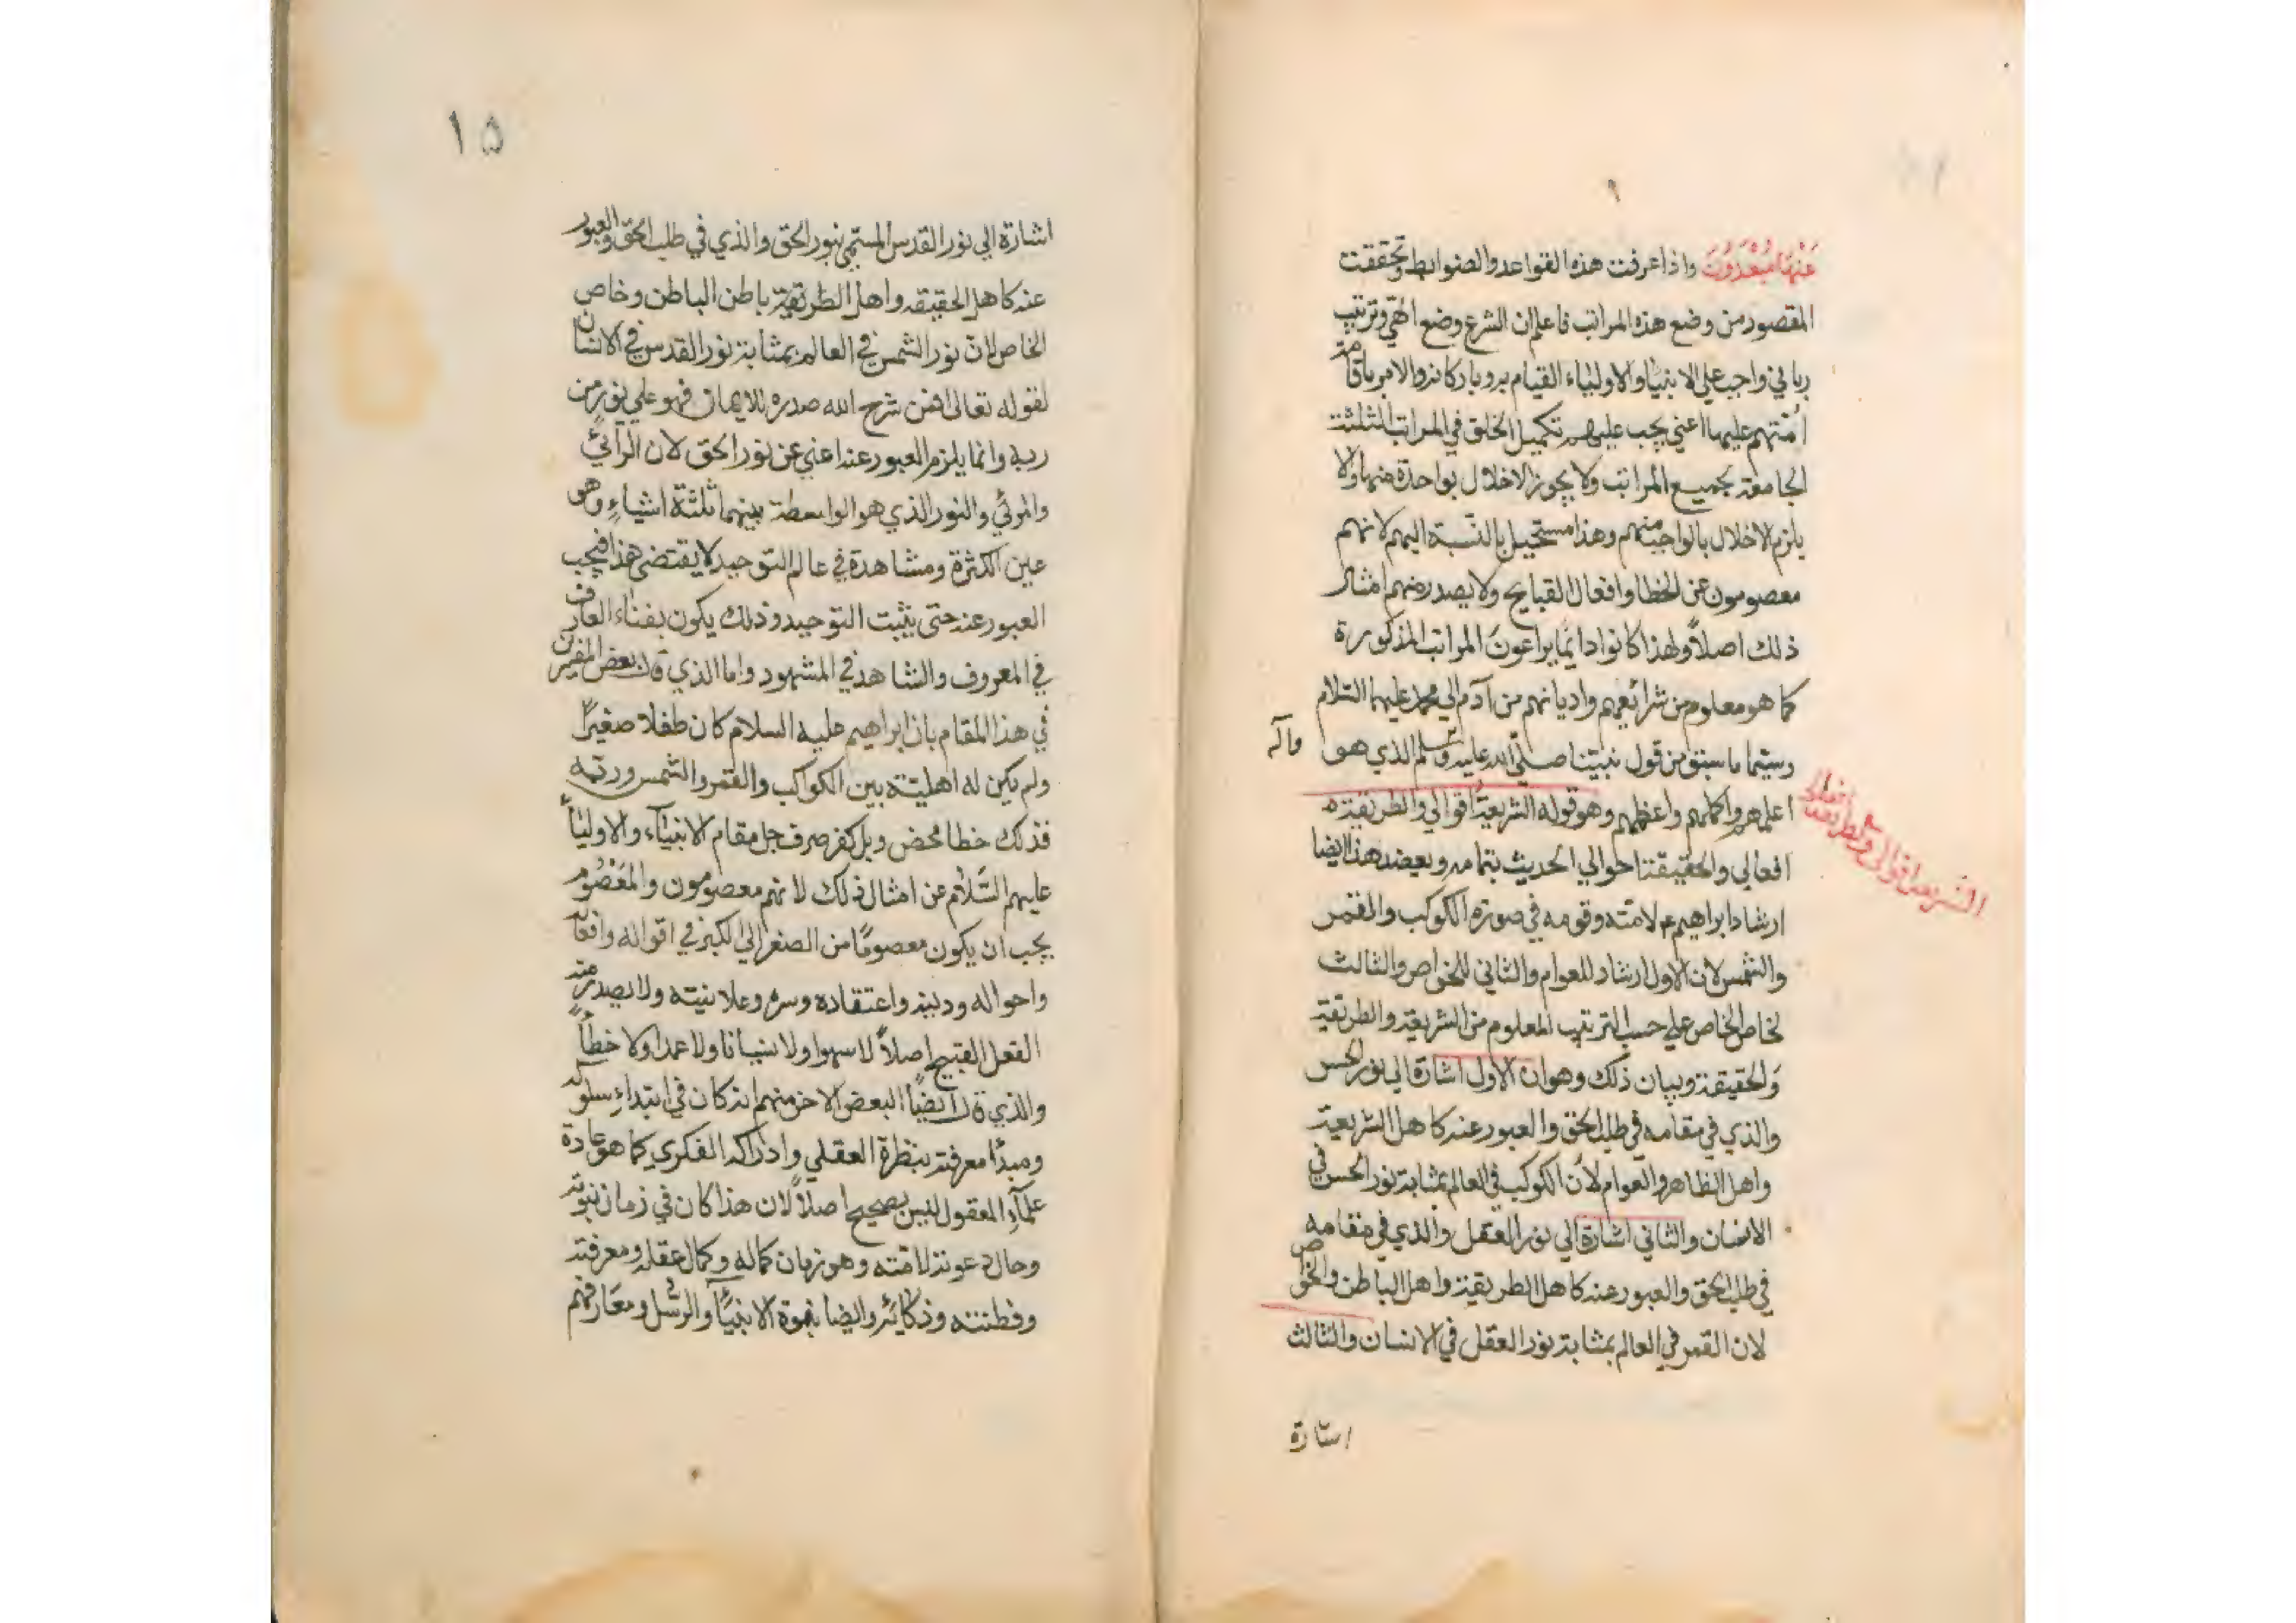 عَنْهَا مُبْعَدُونَ واذا عرفت هذه القواعد والضوابط وتحققت
المقصود من وضع هذه المراتب فاعلم ان الشرع وضع الهيّ وترتيب
رباني واجب علي الانبياء والاولياء القيام به وباركانه والامر باقامة
امّتهم عليها اعني يجب عليهم تكميل الخلق في المراتب الثلثة
الجامعة بجميع المراتب ولا يجوز الاخلال بواحدة منها والا
يلزم الاخلال بالواجب منهم وهذا مستحيل بالنّسبة اليهم لانهم
معصومون عن الخطا وافعال القبايح ولا يصدر منهم امثال
ذلك اصلاً ولهذا كانوا دايمًا يراعونَ المراتب المذكورة
كما هو معلوم من شرائعهم واديانهم من آدم الي محمد عليهما السّلام
وسيّما ما سبق من قول نبيّنا صلّي الله عليه وسلم الذي هو
وآله
اعلمهم واكملهم واعظمهم وهو قوله الشريعة اقوالي والطريقة
افعالي والحقيقة احوالي الحديث بتمامه ويعضد هذا ايضا
الشريعة اقوالي والطريقة افعالي
ارشاد ابراهيم ع لامّته وقومه في صورة الكوكب والقمر
والشمس لان الاول ارشاد للعوام والثاني للخواص والثالث
لخاص الخاص علي حسب الترتيب المعلوم من الشريعة والطريقة
والحقيقة وبيان ذلك وهو ان الاول اشارة الي نور الحس
والذي في مقامه في طلب الحق والعبور عنه كاهل الشريعة
واهل الظاهر والعوام لأن الكوكب في العالم بمثابة نور الحس في
الانسان والثاني اشارة الي نور العقل والذي في مقامه
في طلب الحق والعبور عنه كاهل الطريقة واهل الباطن والخواص
لان القمر في العالم بمثابة نور العقل في الانسان والثالث
اشارة
١٥
اشارة الي نور القدس المسمّي بنور الحق والذي في طلب الحق والعبور
عنه كاهل الحقيقه واهل الطريقة باطن الباطن وخاص
الخاص لانّ نور الشمس في العالم بمثابة نور القدس في الانسان
لقوله تعالى افمن شرح الله صدره للايمان فهو علي نور من
ربه وانما يلزم العبور عنه اعني عن نور الحق لان الرائي
والمرئي والنور الذي هو الواسطة بينهما ثلثة اشياء وهو
عين الكثرة ومشاهدة في عالم التوحيد لا يقتضي هذا فيجب
العبور عنه حتى يثبت التوحيد وذلك يكون بفناء العارف
في المعروف والشاهد في المشهود واما الذي قال بعض المفسرين
في هذا المقام بان ابراهيم عليه السلام كان طفلا صغيرًا
ولم يكن له اهليّة بين الكوكب والقمر والشمس وربّه
فذلك خطا محض وبل كفر صرف جل مقام الانبيآء والاولياء
عليهم السّلام عن امثال ذلك لانهم معصومون والمَعْصُوم
يجب ان يكون معصومًا من الصغر الي الكبر في اقواله وافعاله
واحواله ودينه واعتقاده وسره وعلانيته ولا يصدر منه
الفعل القبيح اصلاً لا سهوا ولا نسيانا ولا عمدا ولا خطأً
والذي قال ايضًا البعض الاخر منهم انه كان في ابتداء سلوكه
ومبدأ معرفته بنظرة العقلي وادراكه الفكري كما هو عادة
علمآء المعقول ليس بصحيح اصلاً لان هذا كان في زمان نبوته
وحال دعوته لامّته وهو زمان كماله وكمال عقله ومعرفته
وفطنته وذكائه وايضا نبوة الانبيآء والرسُل ومعَارفهم